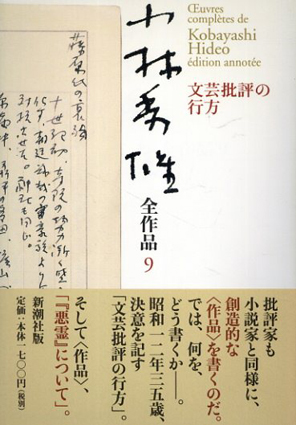 Œuvres
complètes de
Kobayashi
Hideo
édition annotée
文芸批評の
行方
小林秀雄
全作品 9
批評家も
小説家と同様に、
創造的な
〈作品〉を書くのだ。
では、何を、
どう書くか――。
昭和一二年三五歳、
決意を記す
「文芸批評の行方」。
そして〈作品〉、
「『悪霊』について」。
新潮社版
定価：本体一七〇〇円（税別）